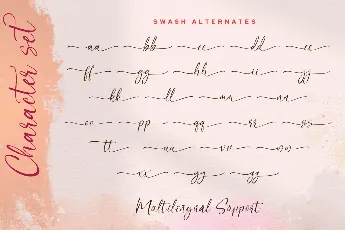 Character set
SWASH ALTERNATES
aa bb cc dd ee
ff gg hh ii jj
kk ll mm nn
oo pp qq rr ss
tt uu vv ww
xx yy zz
Multilingual Support